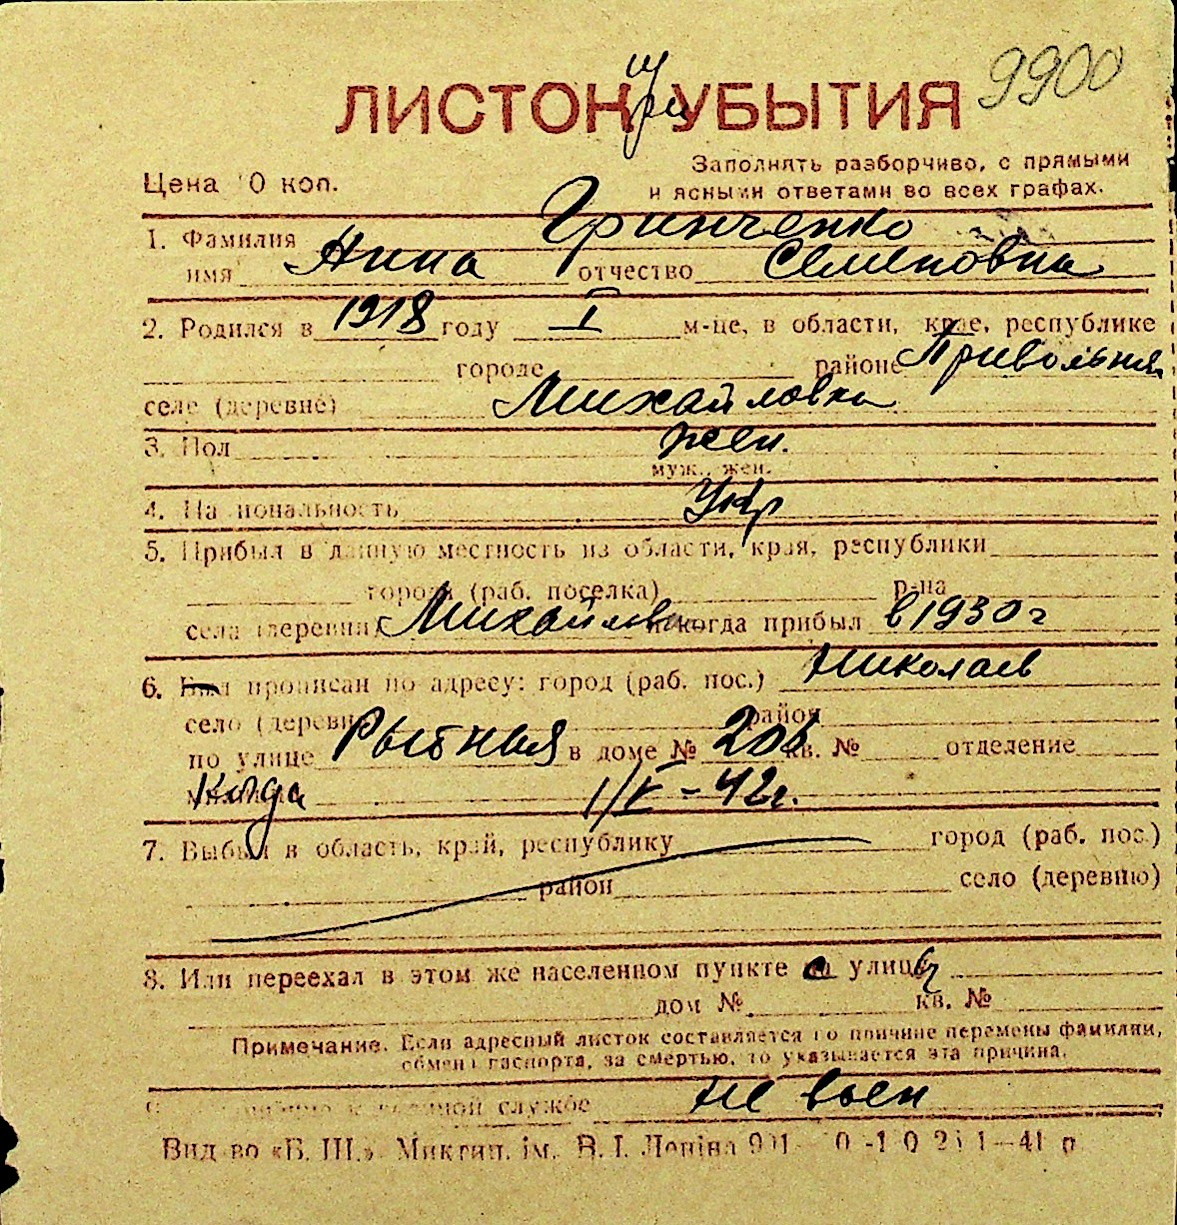 9900
ЛИСТОК при УБЫТИЯ
Заполнять разборчиво, с прямыми
Цена 10 коп.
и ясными ответами во всех графах.
1. Фамилия Гринченко
имя Нина отчество Семеновна
2. Родился в 1918 году I м-це, в области, крае, республике
городе районе Привольня
селе (деревне) Михайловка
3. Пол жен.
муж., жен.
4. Национальность Укр
5. Прибыл в данную местность из области, края, республики
города (раб. поселка) р-на
села (деревни) Михайловки и когда прибыл в 1930 г
6. Был прописан по адресу: город (раб. пос.) Николаев
село (деревня) район
по улице Рыбная в доме № кв. № отделение
Когда 1/V-42г.
7. Выбыл в область, край, республику город (раб. пос.)
район село (деревню)
8. Или переехал в этом же населенном пункте с улицы
дом № кв. №
Примечание. Если адресный листок составляется по причине перемены фамилии,
обмена паспорта, за смертью, то указывается эта причина.
службе не воен
Вид-во «Б. Ш.» Микгип. ім. В. І. Леніна